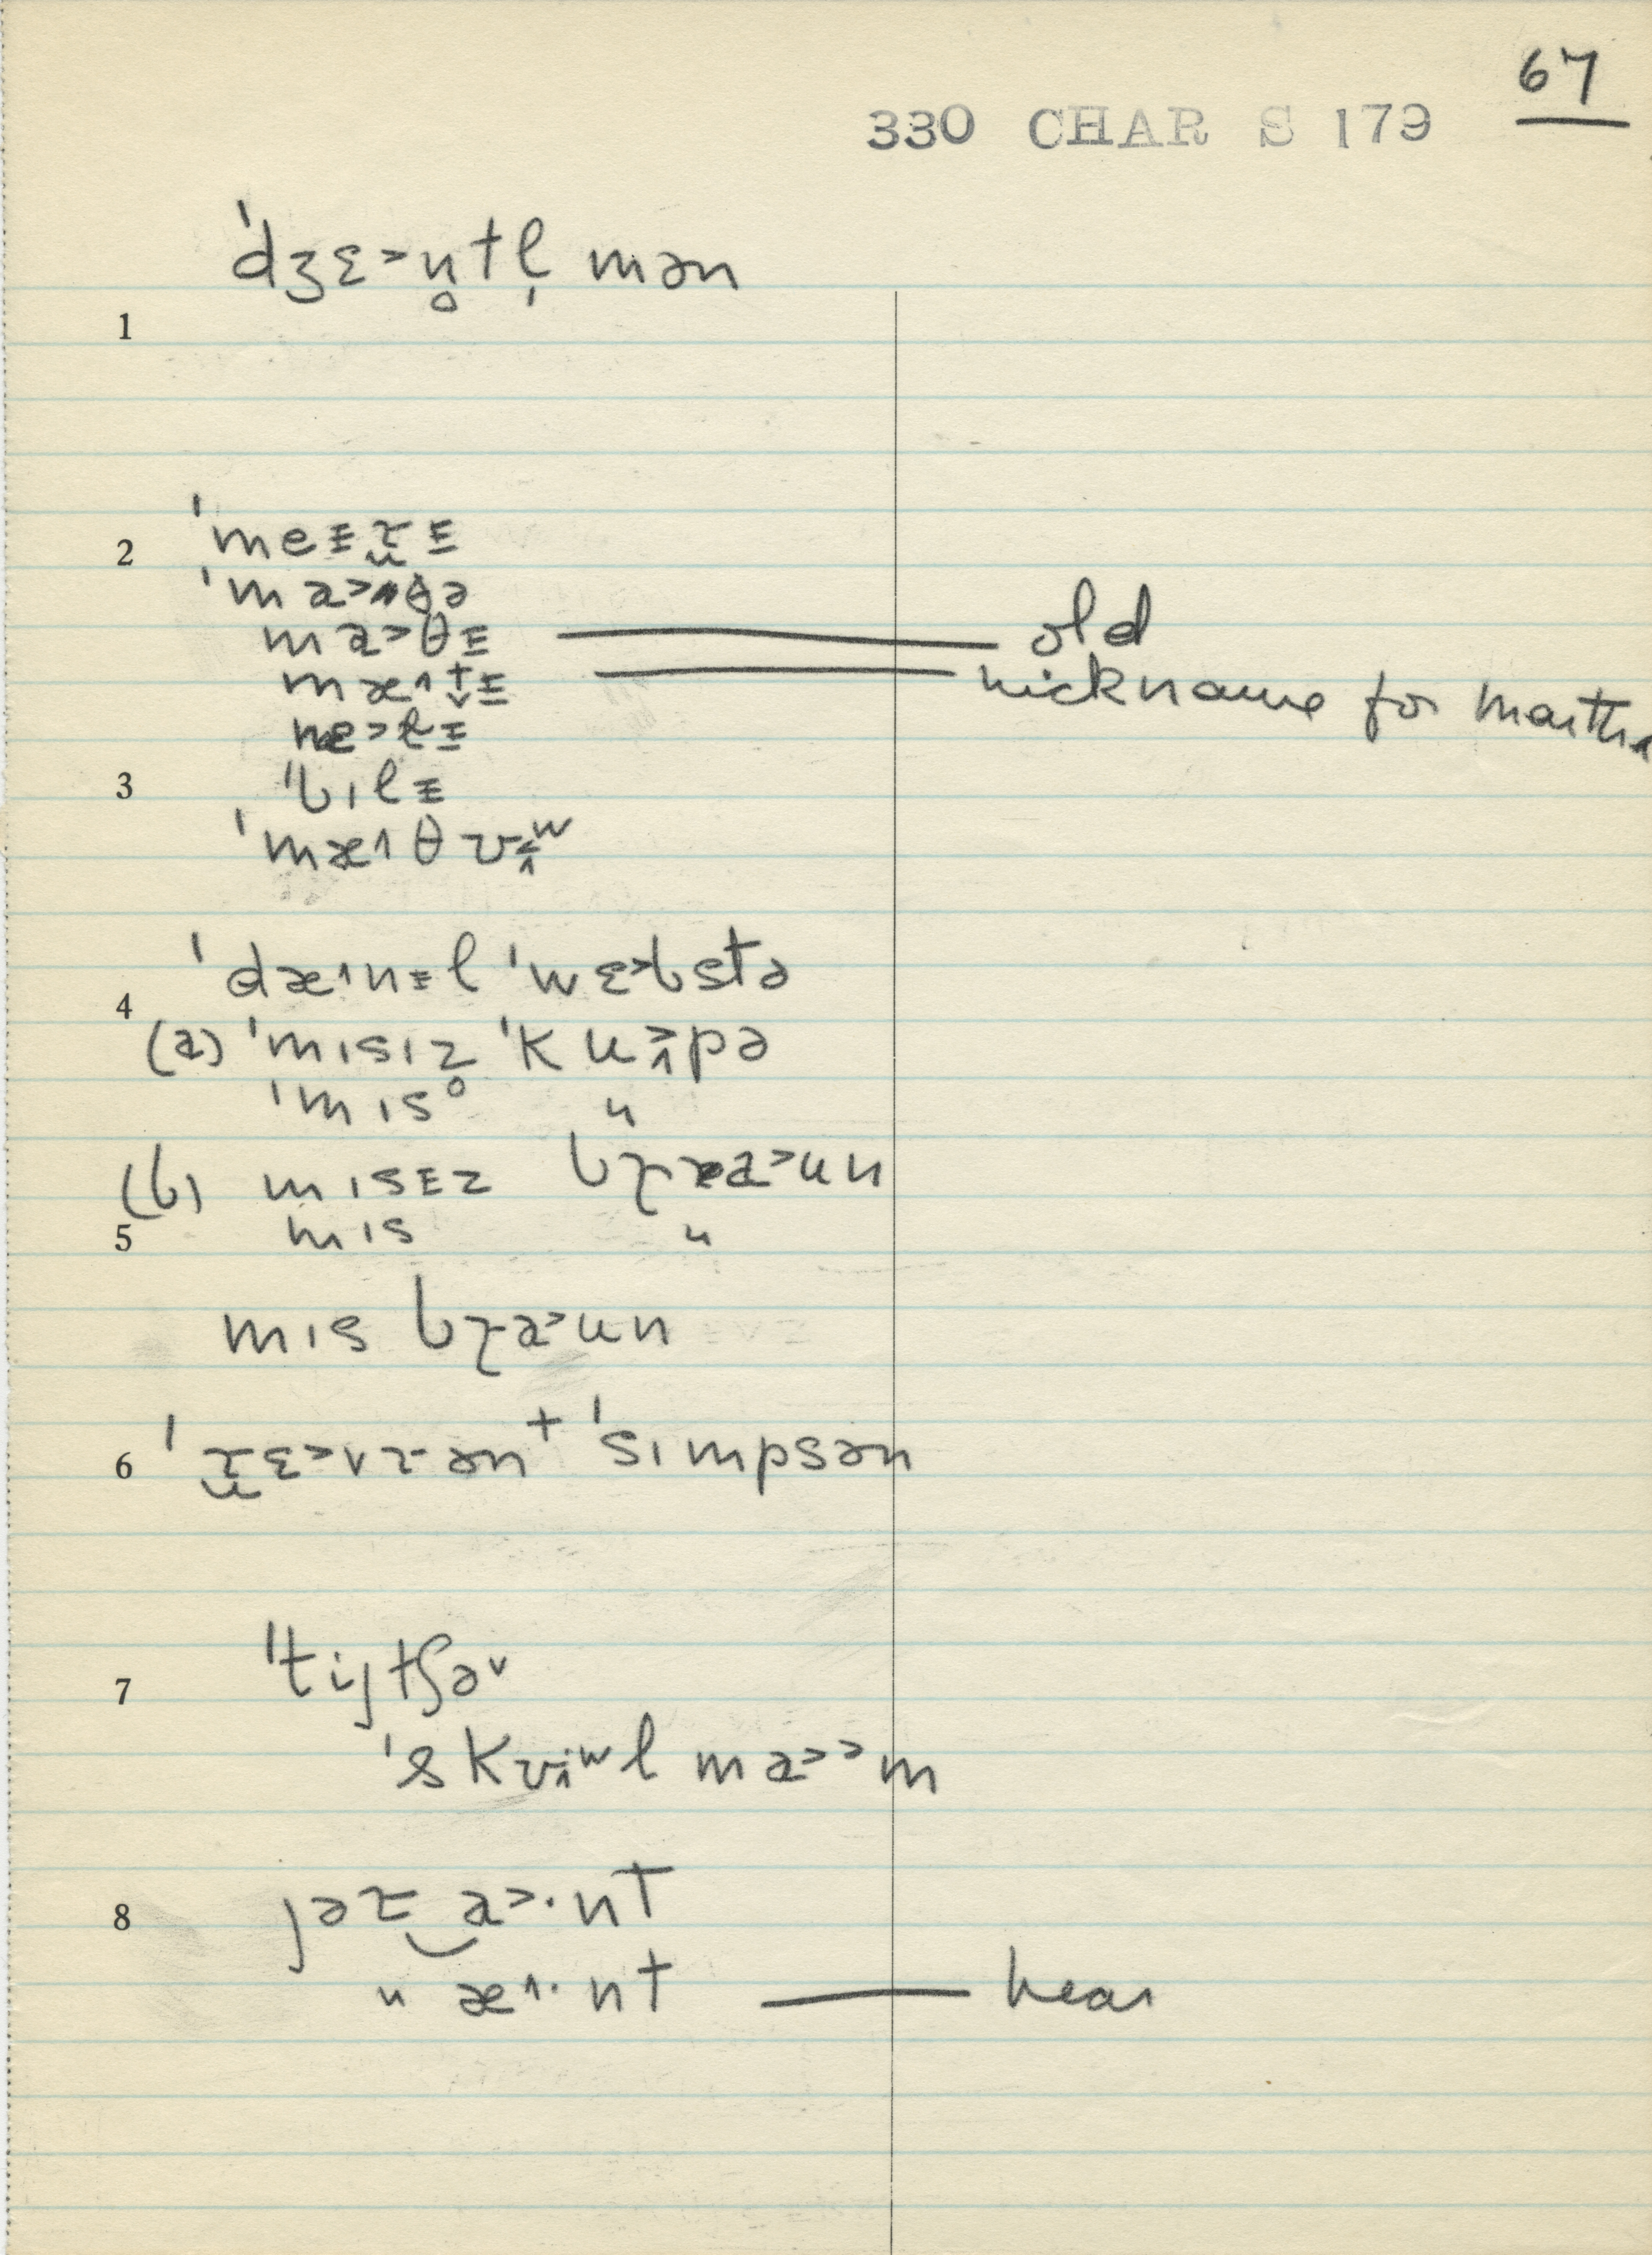 67
330 CHAR S 179
ˈdʒɛ˃n̥tl̩ mən
1
2 ˈmeᵻɹ̮ᵻ
ˈma˃θə
ma˃θᵻ — old
mæ˄t̬ᵻ — nickname for Martha
ne˃lᵻ
3 ˈbɪlᵻ
ˈmæ˄θ
ˈdæ˄nᵻl ˈwɛ˃bstə
4
(a) ˈmɪsɪz̥ ˈku˃˄pə
ˈmɪs "
(b) mɪsᵻz bɹa˃un
5 mɪs "
mɪs bɹa˃un
6 ˈɹ̮ɛ˃vɹən⁺ ˈsɪmpsən
ˈtijtʃə˅
7
ˈskʊ̵˄ʷl ma˃˃m
8 jəɹ‿a˃·nt
" æ˄·nt — hear